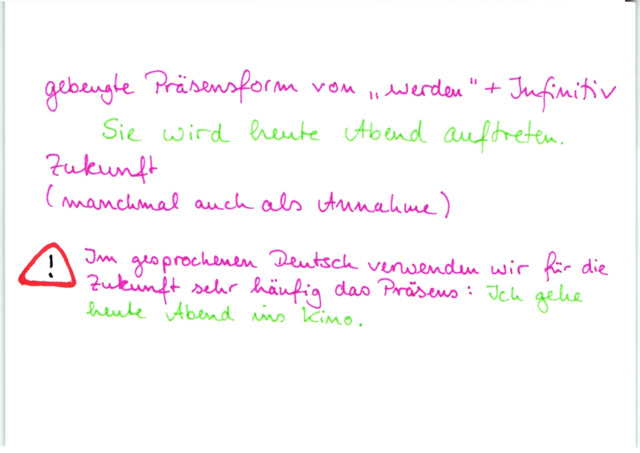 gebeugte Präsensform von „werden" + Infinitiv
Sie wird heute Abend auftreten.
Zukunft
(manchmal auch als Annahme)
! Im gesprochenen Deutsch verwenden wir für die
Zukunft sehr häufig das Präsens: Ich gehe
heute Abend ins Kino.